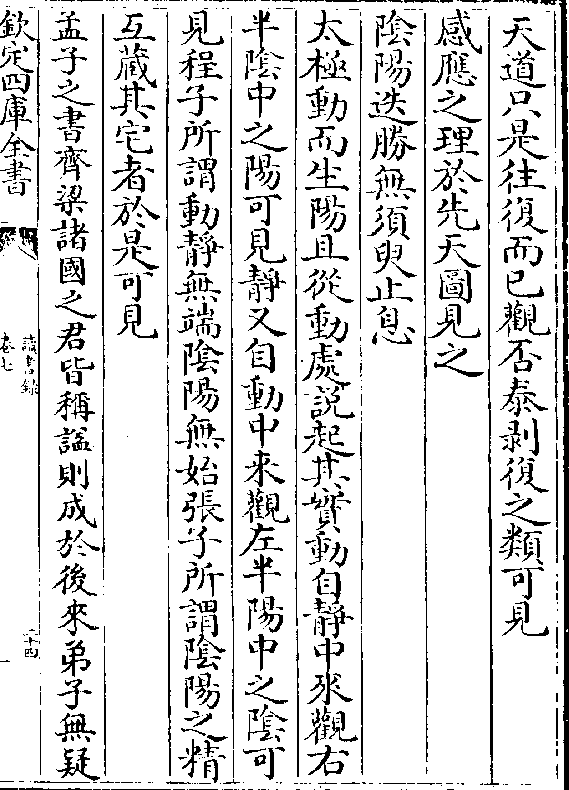 天道只是往復而已觀否泰剥復之類可見
感應之理於先天圖見之
陰陽迭勝無須臾止息
太極動而生陽且從動處説起其實動自靜中來觀右
半陰中之陽可見靜又自動中來觀左半陽中之陰可
見程子所謂動靜無端陰陽無始張子所謂陰陽之精
互藏其宅者於是可見
孟子之書齊梁諸國之君皆稱諡則成於後來弟子無疑
欽定四庫全書
讀書錄
卷七
二十四